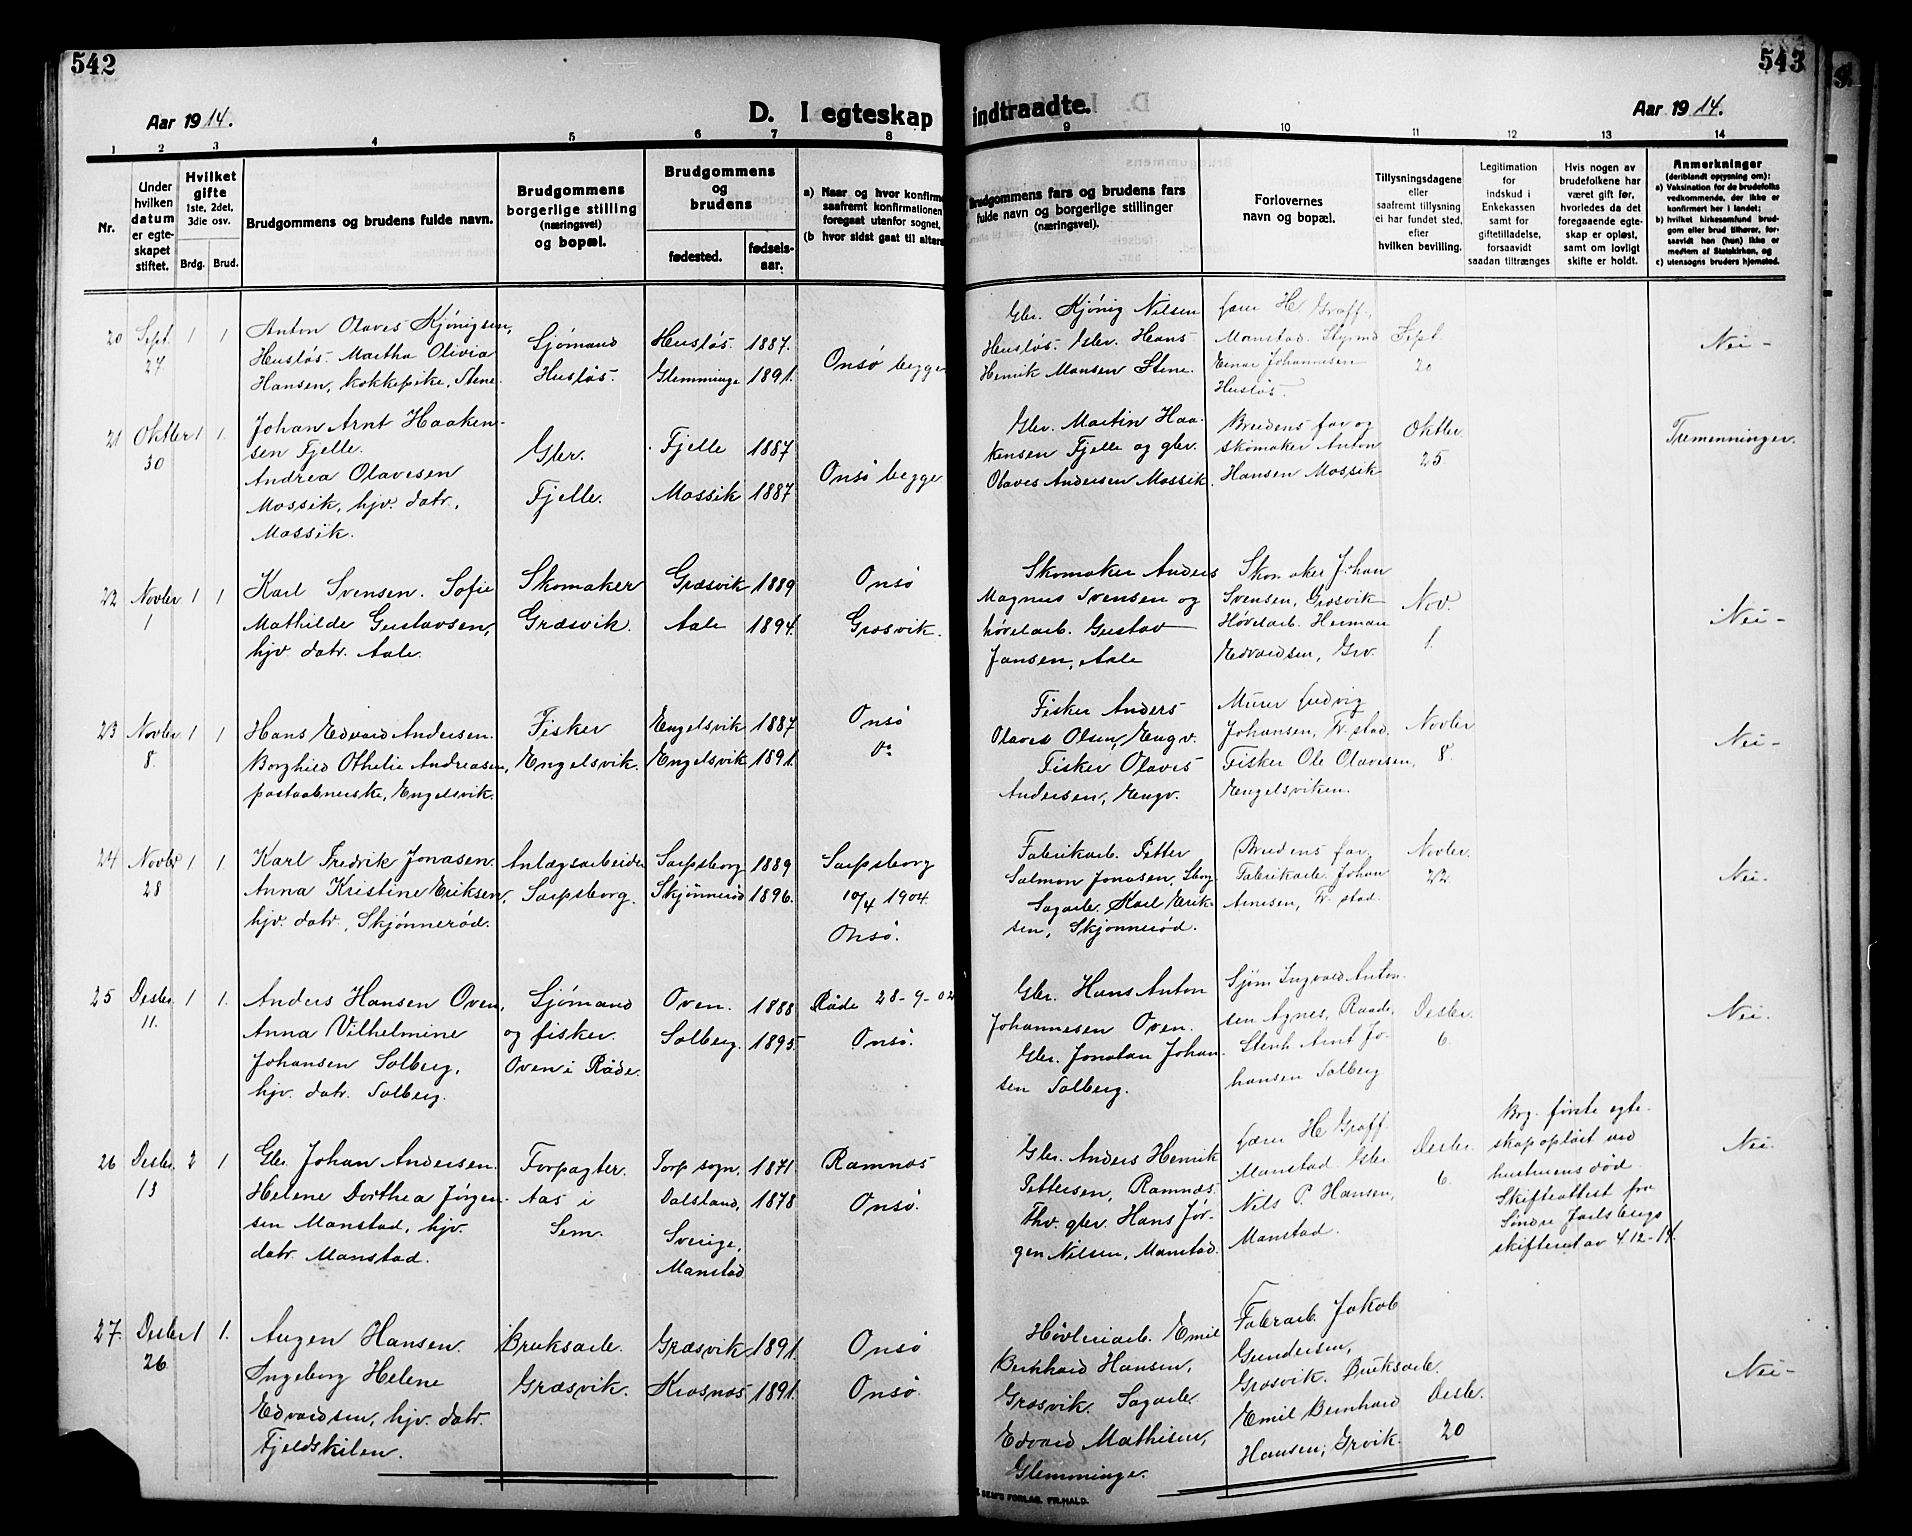 542
Aar 1914.
D. I egteskap
1 2 3 4 5 6 7 8
Nr.
Under hvilken datum er egteskapet stiftet.
Hvilket gifte 1ste, 2det, 3die osv.
Brdg. Brud.
Brudgommens og brudens fulde navn.
Brudgommens borgerlige stilling (næringsvei) og bopæl.
Brudgommens og brudens
fødested. fødsels-aar.
a) Naar og hvor konfirm
saafremt konfirmationen
foregaat utenfor sognet,
(b hvor sidst gaat til alters
20 Sept. 24 1 1
Anton Olaves Kjönigsen,
Husløs. Martha Olivia
Hansen, kokkepike, Stene
Sjömand
Husløs.
Husløs 1887.
Glemminge 1891.
Onsö begge
21 Oktber 30 1 1.
Johan Arnt Haaken-
sen Fjelle.
Andrea Olavesen
Mossik, hjv. datr,
Mossik.
Gbr.
Fjelle.
Fjelle 1887
Mossik 1887
Onsö begge
22 Novber 1 1 1
Karl Svensen. Sofie
Mathilde Gustavsen,
hjv. datr. Aale.
Skomaker
Græsvik.
Græsvik 1889
Aale 1894.
Onsö
Græsvik.
23 Novber 8. 1 1
Hans Edvard Andersen.
Borghild Othelie Andreasen,
postaabnerske, Engelsvik.
Fisker
Engelsvik.
Engelsvik 1887
Engelsvik 1891.
Onsö
do
24 Novbr 28 1 1.
Karl Fredrik Jonasen.
Anna Kristine Eriksen,
hjv. datr., Skjönnerød.
Anlægsarbeider
Sarpsborg.
Sarpsborg 1889
Skjönnerød 1896.
Sarpsborg
10/4 1904.
Onsö.
25 Desbr. 11. 1 1.
Anders Hansen Oven,
Anna Vilhelmine
Johansen Solberg,
hjv. datr. Solberg.
Sjömand
og fisker.
Oven i Råde.
Oven. 1888
Solberg. 1895.
Råde 28-9-02
Onsö.
26 Desbr. 13 2 1
Gbr. Johan Andersen.
Helene Dorthea Jørgen-
sen Manstad, hjv.
datr. Manstad.
Forpagter.
Aas i
Sem.
Torp sogn, 1871
Dalsland, 1878
Sverige,
Manstad
Ramnæs
Onsö.
27. Desbr 26 1 1.
Augen Hansen.
Ingeborg Helene
Edvardsen, hjv. datr.
Fjeldskilen.
Bruksarb.
Græsvik.
Græsvik 1891.
Krosnæs 1891.
Onsö
Onsö.
543
indtraadte.
Aar 1914.
9 10 11 12 13 14
Brudgommens fars og brudens fars
fulde navn og borgerlige stillinger
(næringsvei).
Forlovernes
navn og bopæl.
Tillysningsdagene
eller
saafremt tillysning
ei har fundet sted,
efter
hvilken bevilling.
Legitimation
for
indskud i
Enkekassen
samt for
giftetilladelse,
forsaavidt
saadan tiltrænges
Hvis nogen av
brudefolkene har
været gift før,
hvorledes da det
foregaaende egte-
skap er opløst,
samt om lovligt
skifte er holdt.
Anmerkninger
(deriblandt oplysning om):
a) Vaksination for de brudefolks
vedkommende, der ikke er
konfirmert her i landet;
b) hvilket kirkesamfund brud-
gom eller brud tilhører, for-
saavidt han (hun) ikke er
medlem af Statskirken, og
c) utensogns bruders hjemsted.
Gbr. Kjönig Nilsen
Husløs. Gbr. Hans
Henrik Mansen Stene.
H Graff,
Manstad. Styrmd
Einar Johannesen
Husløs.
Sept.
20
Nei-
Gbr. Martin Haa-
kensen Fjelle og gbr.
Olaves Andersen Mossik.
Brudens far og
skomaker Anton
Hansen Mossik
Oktbr.
25.
Tremenninger.
Skomaker Anders
Magnus Svensen og
hövelarb. Gustav
Jansen, Aale
Skomaker Johan
Svensen, Græsvik
Hövelarb. Herman
Edvardsen, Grv.
Nov.
1.
Nei-
Fisker Anders
Olaves Olsen, Engv.
Fisker Olaves
Andersen, Engv.
Murer Ludvig
Johansen, Fr.stad.
Fisker Ole Olavesen,
Engelsviken.
Novber
8.
Nei-
Fabrikarb. Petter
Salmon Jonasen, Sbrg
Sagarb. Karl Erik-
sen, Skjönnerød.
Brudens far.
Fabrikarb. Johan
Arnesen, Fr.stad.
Novber.
22.
Nei-
Gbr. Hans Anton
Johannesen Oven.
Gbr. Jonatan Johan-
sen Solberg.
Sjöm. Ingvald Anton-
sen Agnes, Raade,
Stenh. Arnt Jo-
hansen Solberg
Desbr.
6.
Nei.
Gbr. Anders Henrik
Pettersen, Ramnæs.
Fhv. gbr. Hans Jør-
gen Nilsen, Manstad.
H Graff
Manstad. Gbr.
Nils P. Hansen,
Manstad.
Desbr.
6.
Brg. første egte-
skap opløst ved
hustruens død.
Skifteattest fra
Søndre Jarlsbergs
skifteret av 4.12-14.
Nei-
Høvleriarb. Emil
Bernhard Hansen,
Græsvik. Sagarb.
Edvard Mathisen,
Glemminge.
Fabrarb. Jakob
Gundersen,
Græsvik. Bruksarb.
Emil Bernhard
Hansen, Grvik.
Desbr.
20
Nei-
SEM'S FORLAG. FR.HALD.